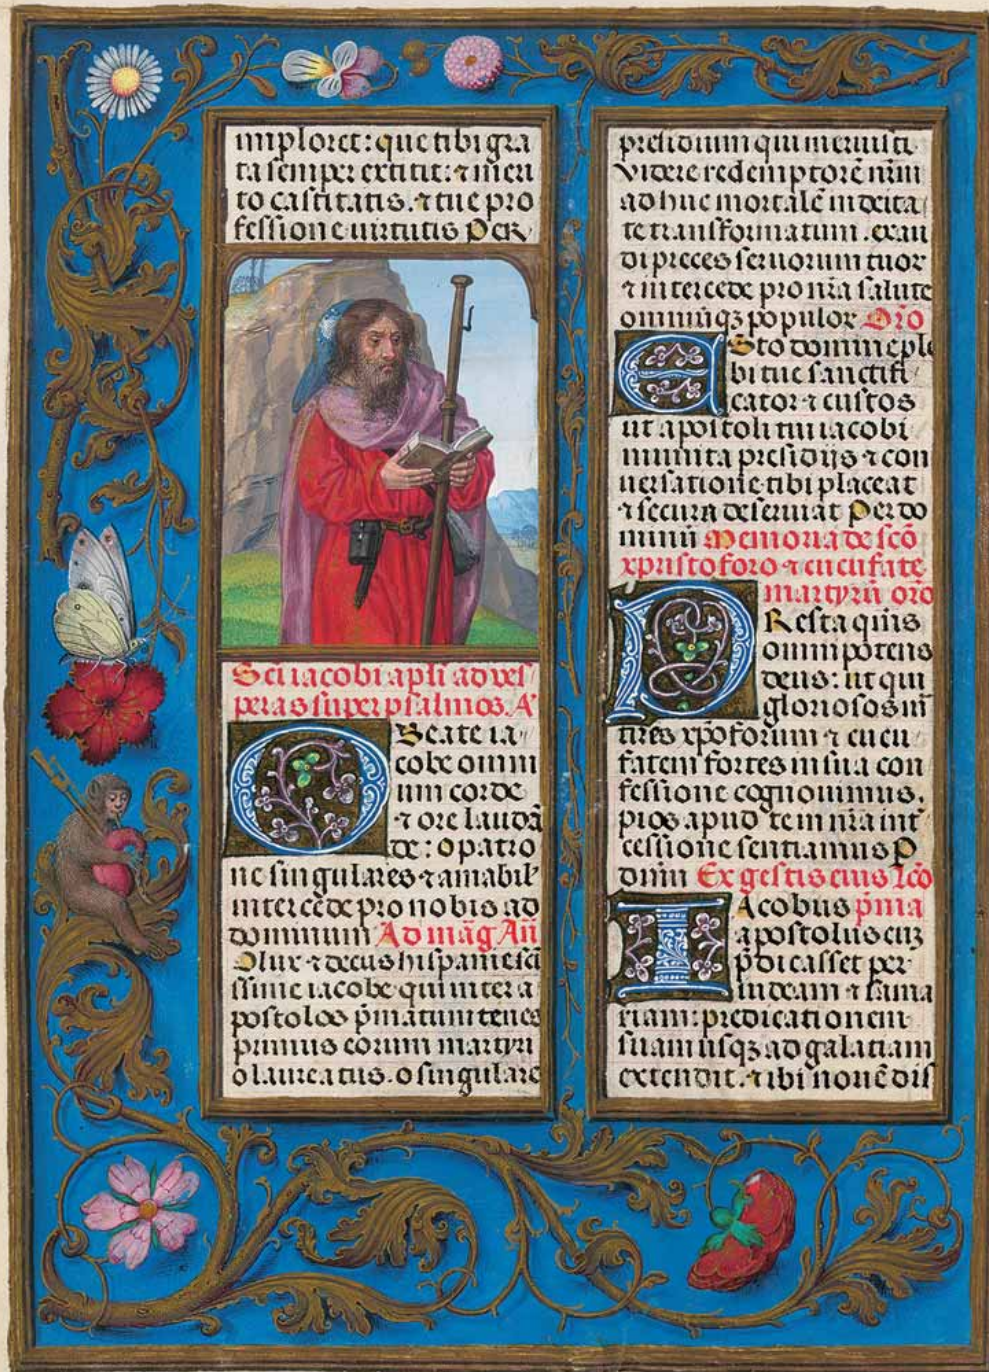 imploret: que tibi gra
ta semper extitit: ⁊ meri
to castitatis. ⁊ tue pro
fessione uirtutis Per
Sci iacobi apłi ad ves
peras super psalmos. A͞
O Beate ia
cobe omni
um corde
⁊ ore laudā
de: o patro
ne singulares ⁊ amabil
intercede pro nobis ad
dominum Ad mãg Añ
O lux ⁊ decus hispanie sci
ssime iacobe qui inter a
postolos p̃matum tenes
primus eorum martyri
o laureatus. o singulare
presidium qui meruisti
videre redemptorē nr̃m
adhuc mortalē in deita
te transformatum. exau
di preces seruorum tuor
⁊ intercede pro nr̃a salute
omniūqꝫ populor Orõ
Esto domine ple
bi tue sanctifi
cator ⁊ custos
ut apostoli tui iacobi
munita presidijs ⁊ con
uersatione tibi placeat
⁊ secura deseruiat Per do
minū Memoria de scõ
xpristoforo ⁊ cucufate
martyrũ orõ
PResta quis
omnipotens
deus: ut qui
gloriosos m̃
tires xp̃oforum ⁊ cucu
fatem fortes in sua con
fessione cognouimus.
pios apud te in nr̃a int͛
cessione sentiamus P
dñm Ex gestis eius Lcõ
IAcobus p̃ma
apostolus cuꝫ
p̃dicasset per
iudeam ⁊ sama
riam: predicationem
suam usqꝫ ad galatiam
extendit. ⁊ ibi nouē dis